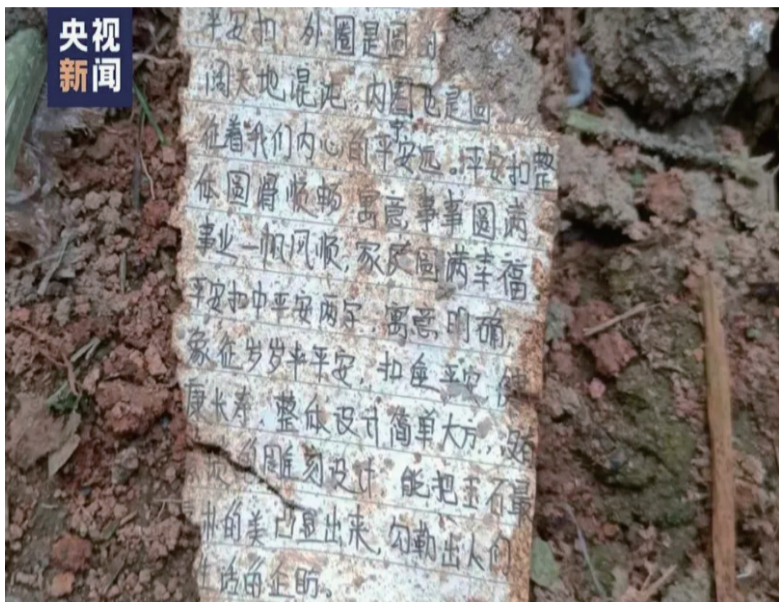 央视
新闻
平安扣,外圈是圆
阔天地混沌,内圈也是圆
征着我们内心的平安宁远。平安扣整
体圆滑顺畅,寓意,事事圆满
事业一帆风顺,家庭圆满幸福
平安扣中平安两字,寓意,明确,
象征岁岁平平安,扣坐平安,健
康长寿,整体设计简单大方,没
雕刻设计 能把玉石最
朴的美凸显出来,勾勒出人们
生活的企盼。